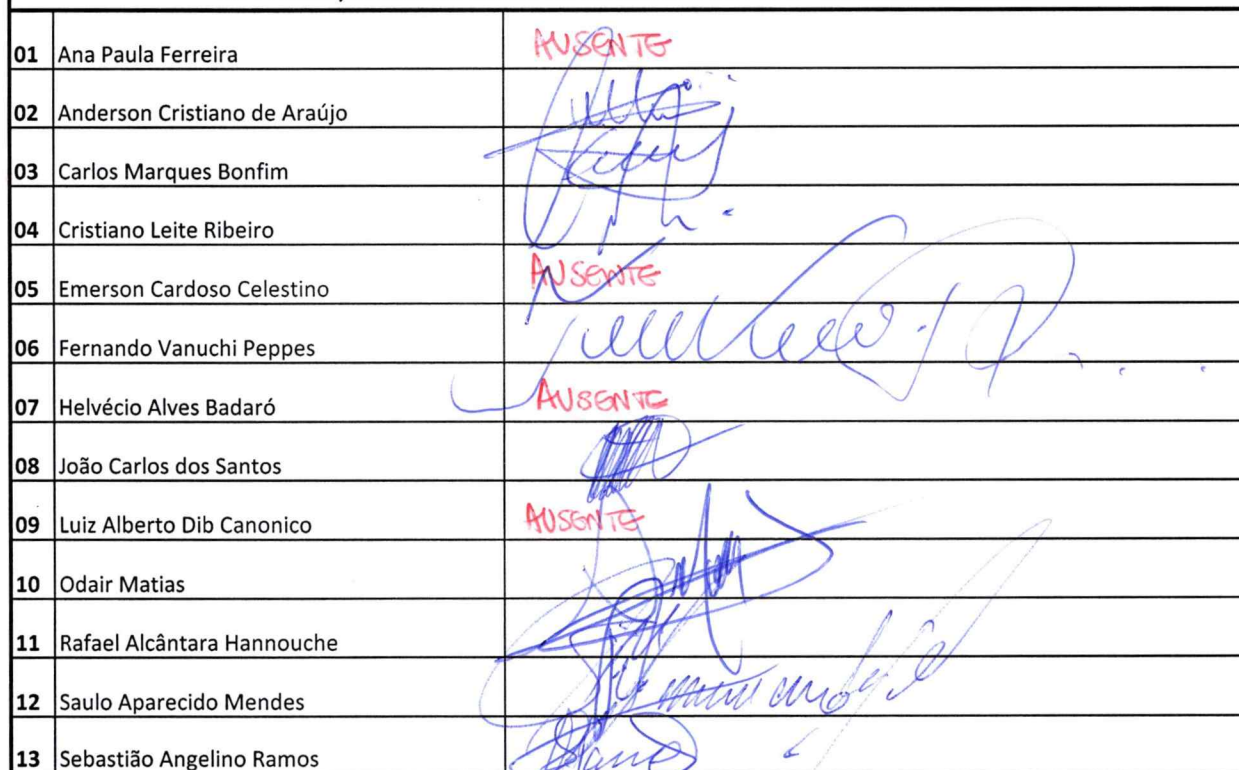 01 Ana Paula Ferreira AUSENTE
02 Anderson Cristiano de Araújo
03 Carlos Marques Bonfim
04 Cristiano Leite Ribeiro
05 Emerson Cardoso Celestino AUSENTE
06 Fernando Vanuchi Peppes
07 Helvécio Alves Badaró AUSENTE
08 João Carlos dos Santos
09 Luiz Alberto Dib Canonico AUSENTE
10 Odair Matias
11 Rafael Alcântara Hannouche
12 Saulo Aparecido Mendes
13 Sebastião Angelino Ramos